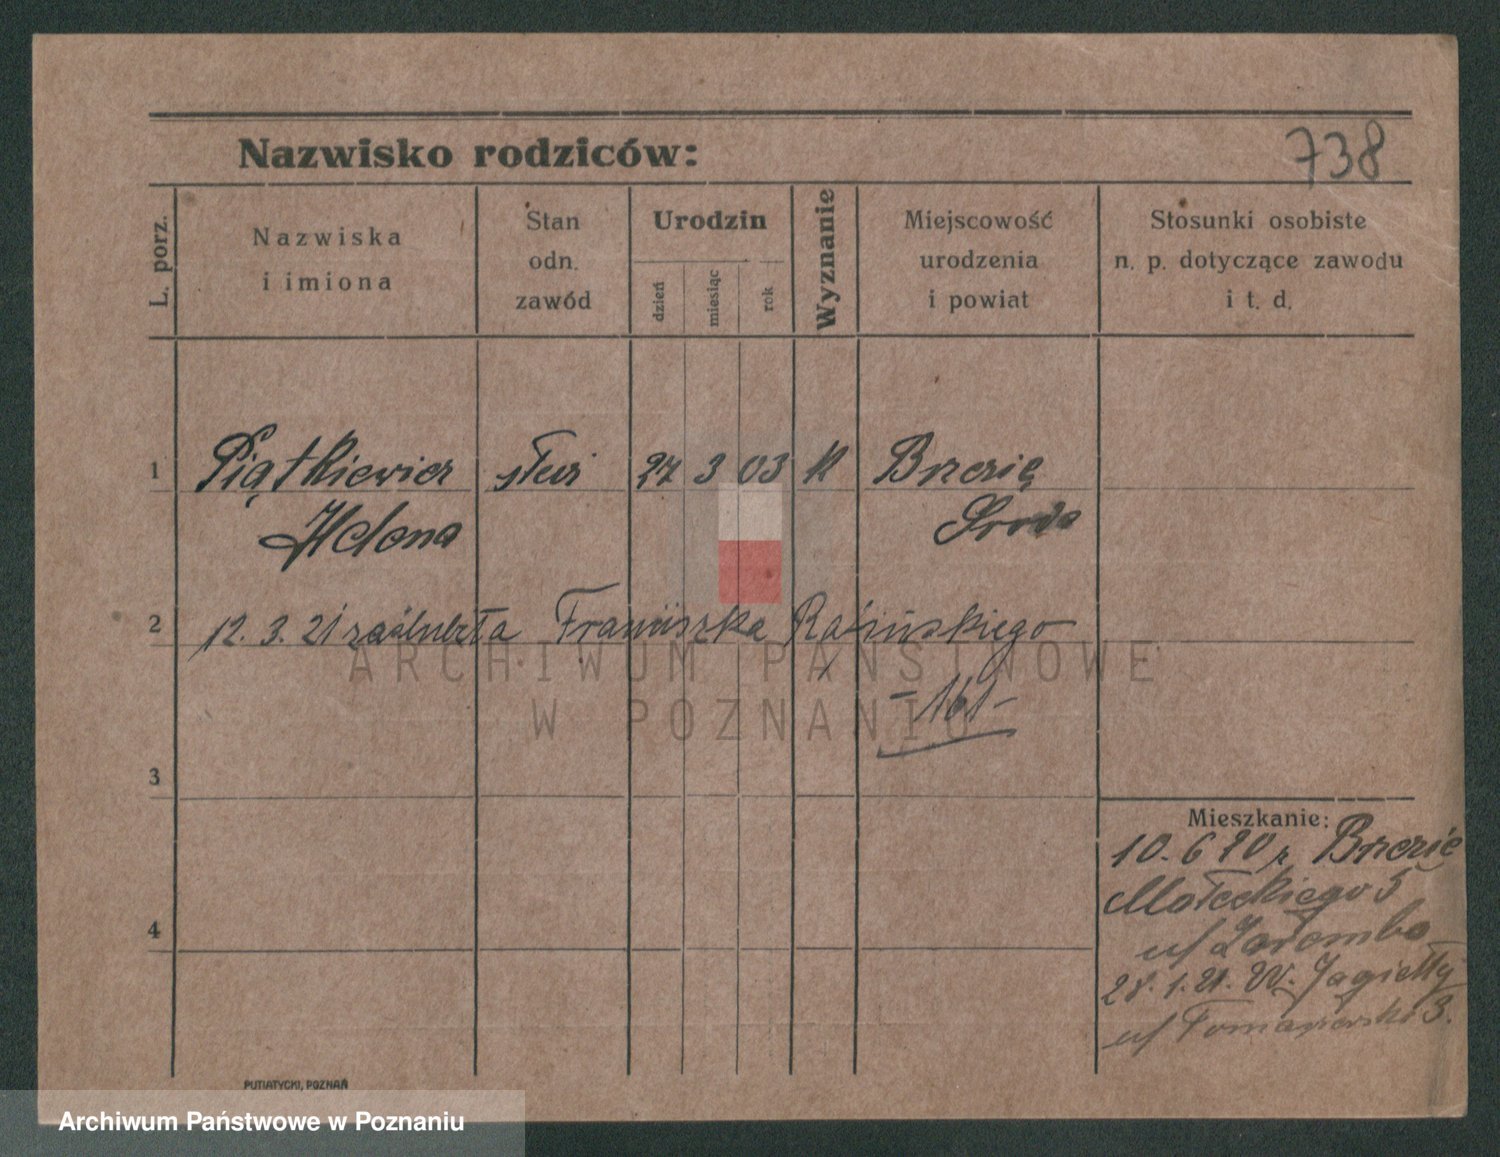 Nazwisko rodziców:
738
L. porz.
Nazwiska
i imiona
Stan
odn.
zawód
Urodzin
dzień
miesiąc
rok
Wyznanie
Miejscowość
urodzenia
i powiat
Stosunki osobiste
n. p. dotyczące zawodu
i t. d.
1 Piątkiewicz 27 3 03 K Brzezie
Helena Środa
2 12. 3. 21 zaślubiła Franciszka Rasińskiego
-161-
3
Mieszkanie:
10. 6 20 z Brzezie
Małeckiego 5
4
u/ Zaremba
28. 1. 21. W. Jagiełły
u/ Tomaszewska 3.
PUTIATYCKI, POZNAŃ
ARCHIWUM PAŃSTWOWE
W POZNANIU
Archiwum Państwowe w Poznaniu